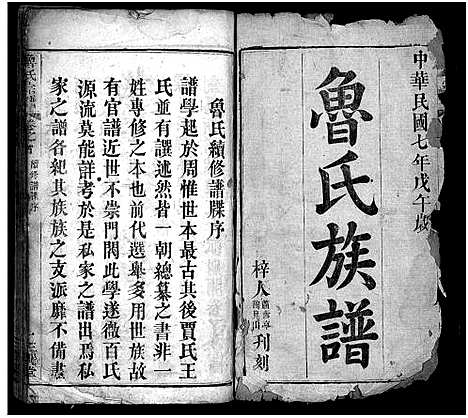 中華民國七年戊午歲
魯氏族譜
梓人
刊刻
魯氏續修譜牒序
譜學起於周惟世本最古其後賈氏王
氏並有譔述然皆一朝總纂之書非一
姓專修之本也前代選舉多用世族故
有官譜近世不崇門閥此學遂微百氏
源流莫能詳考於是私家之譜出焉私
家之譜各紀其族族之支派靡不備書